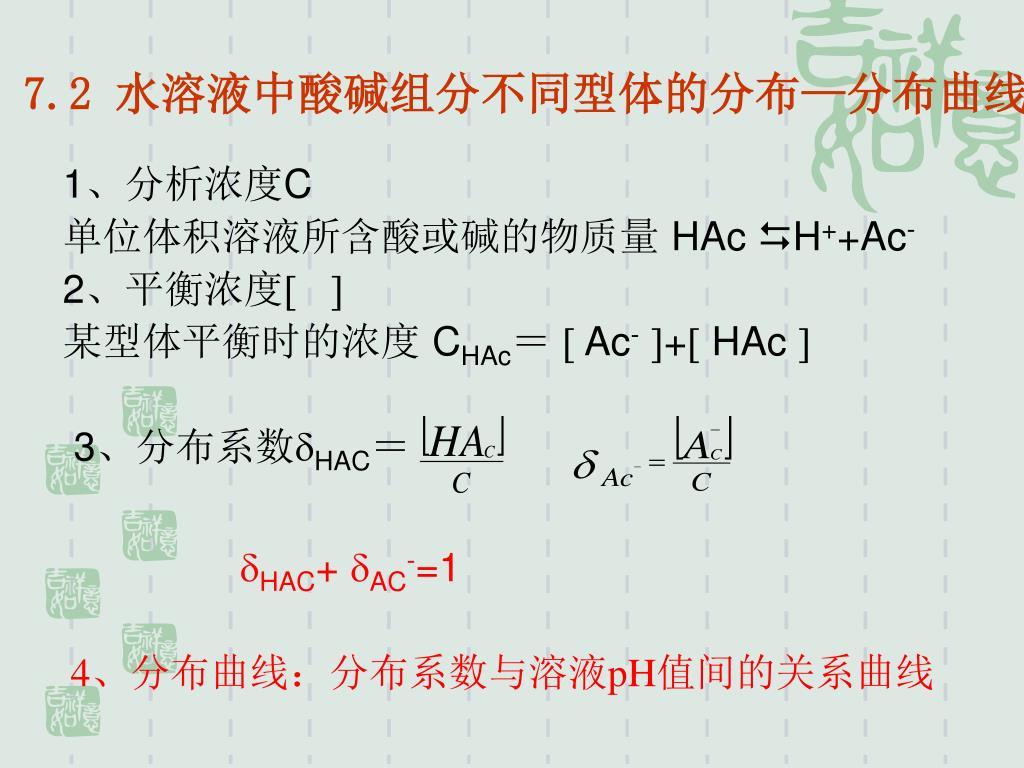 7.2 水溶液中酸碱组分不同型体的分布—分布曲线
1、分析浓度C
单位体积溶液所含酸或碱的物质量 HAc ⇆H⁺+Ac⁻
2、平衡浓度[ ]
某型体平衡时的浓度 C_HAc＝ [ Ac⁻ ]+[ HAc ]
3、分布系数δ_HAC＝ ⌊HA_C⌋/C δ_Ac⁻ = ⌊A_C⁻⌋/C
δ_HAC+ δ_AC⁻=1
4、分布曲线：分布系数与溶液pH值间的关系曲线